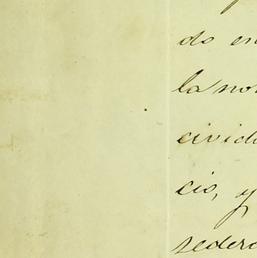 do en
la no
civid
cio, y
redero